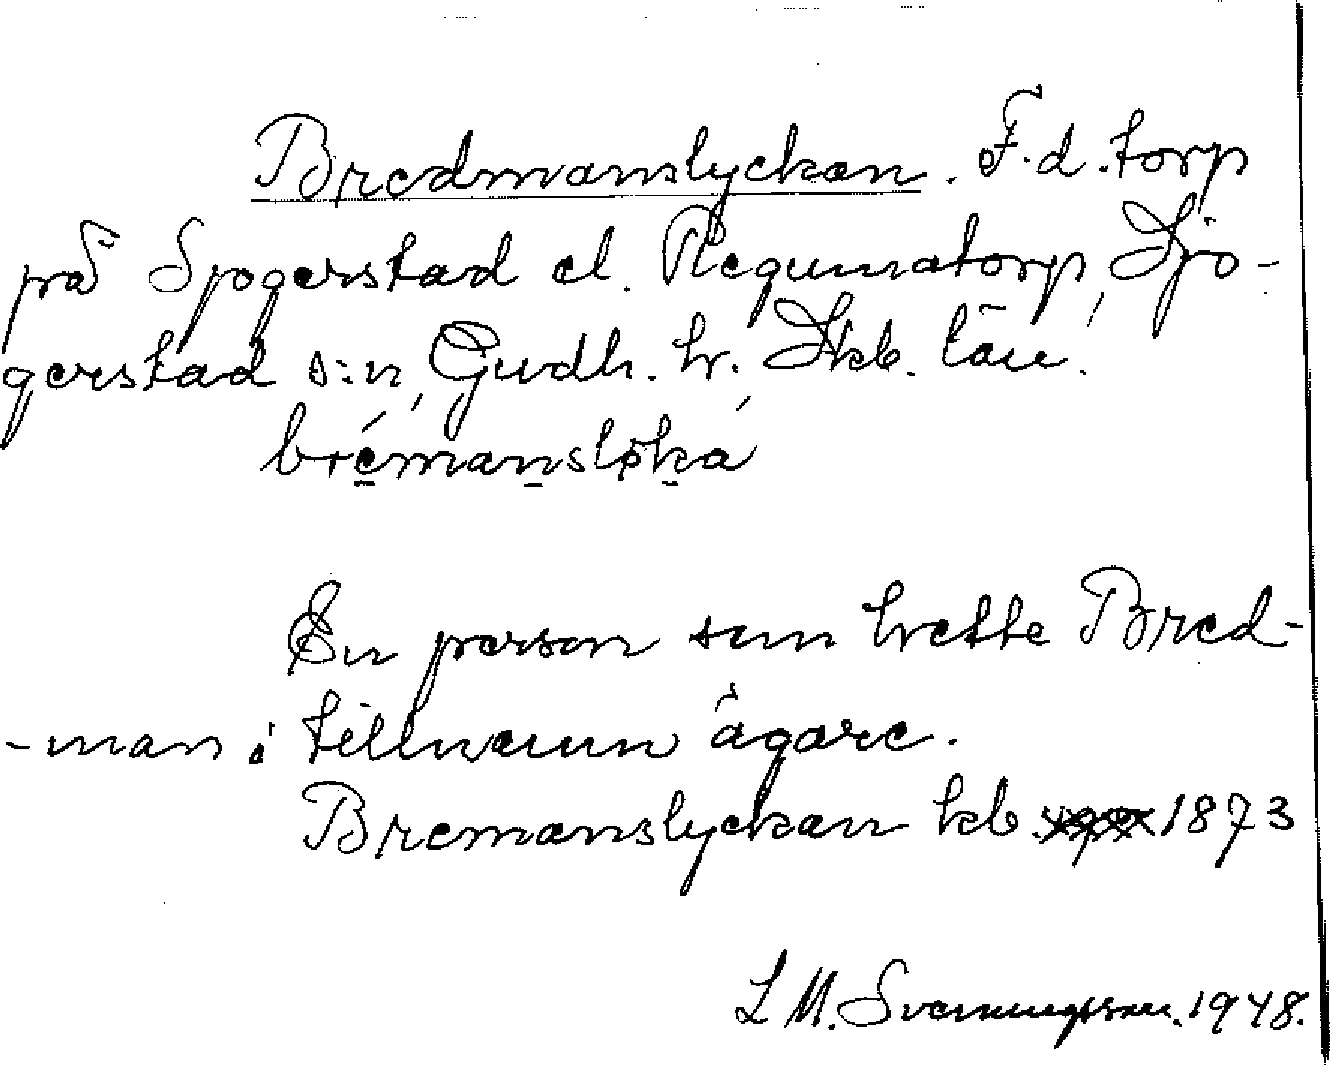 Bredmanslyckan. F.d. torp
på Sjogerstad el. Regumatorp, Sjo-
gerstad s:n, Gudh. hr. Skb. län.
brémansløká
En person som hette Bred-
-man i tillnamn ägare.
Bremanslyckan kb 1873
L M. Svenningsson. 1948.